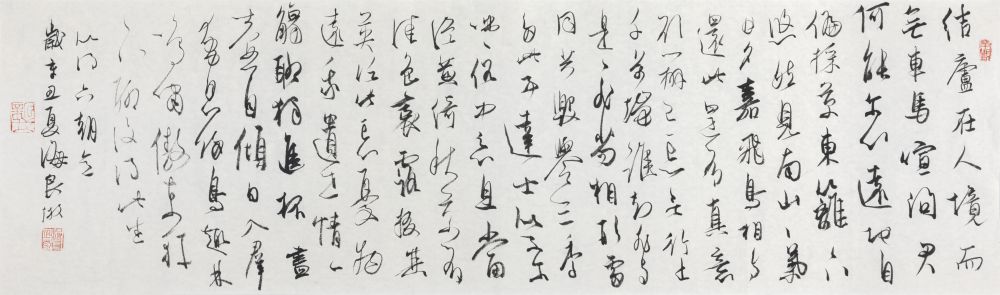 結廬在人境而
無車馬喧問君
何能尔心遠地自
偏採菊東籬下
悠然見南山々氣
日夕嘉飛鳥相与
還此還有真意
欲辨已忘言行止
千万端誰知非与
是々非苟相形雷
同共毀譽三季
多此事達士似不尔
咄々俗中愚且當
從黃綺秋菊有
佳色裛露掇其
英泛此忘憂物
遠我遺世情一
觴聊獨進杯盡
壺自傾日入群
動息歸鳥趨林
鳴嘯傲東軒
下聊復得此生
六朝
歲辛丑夏海